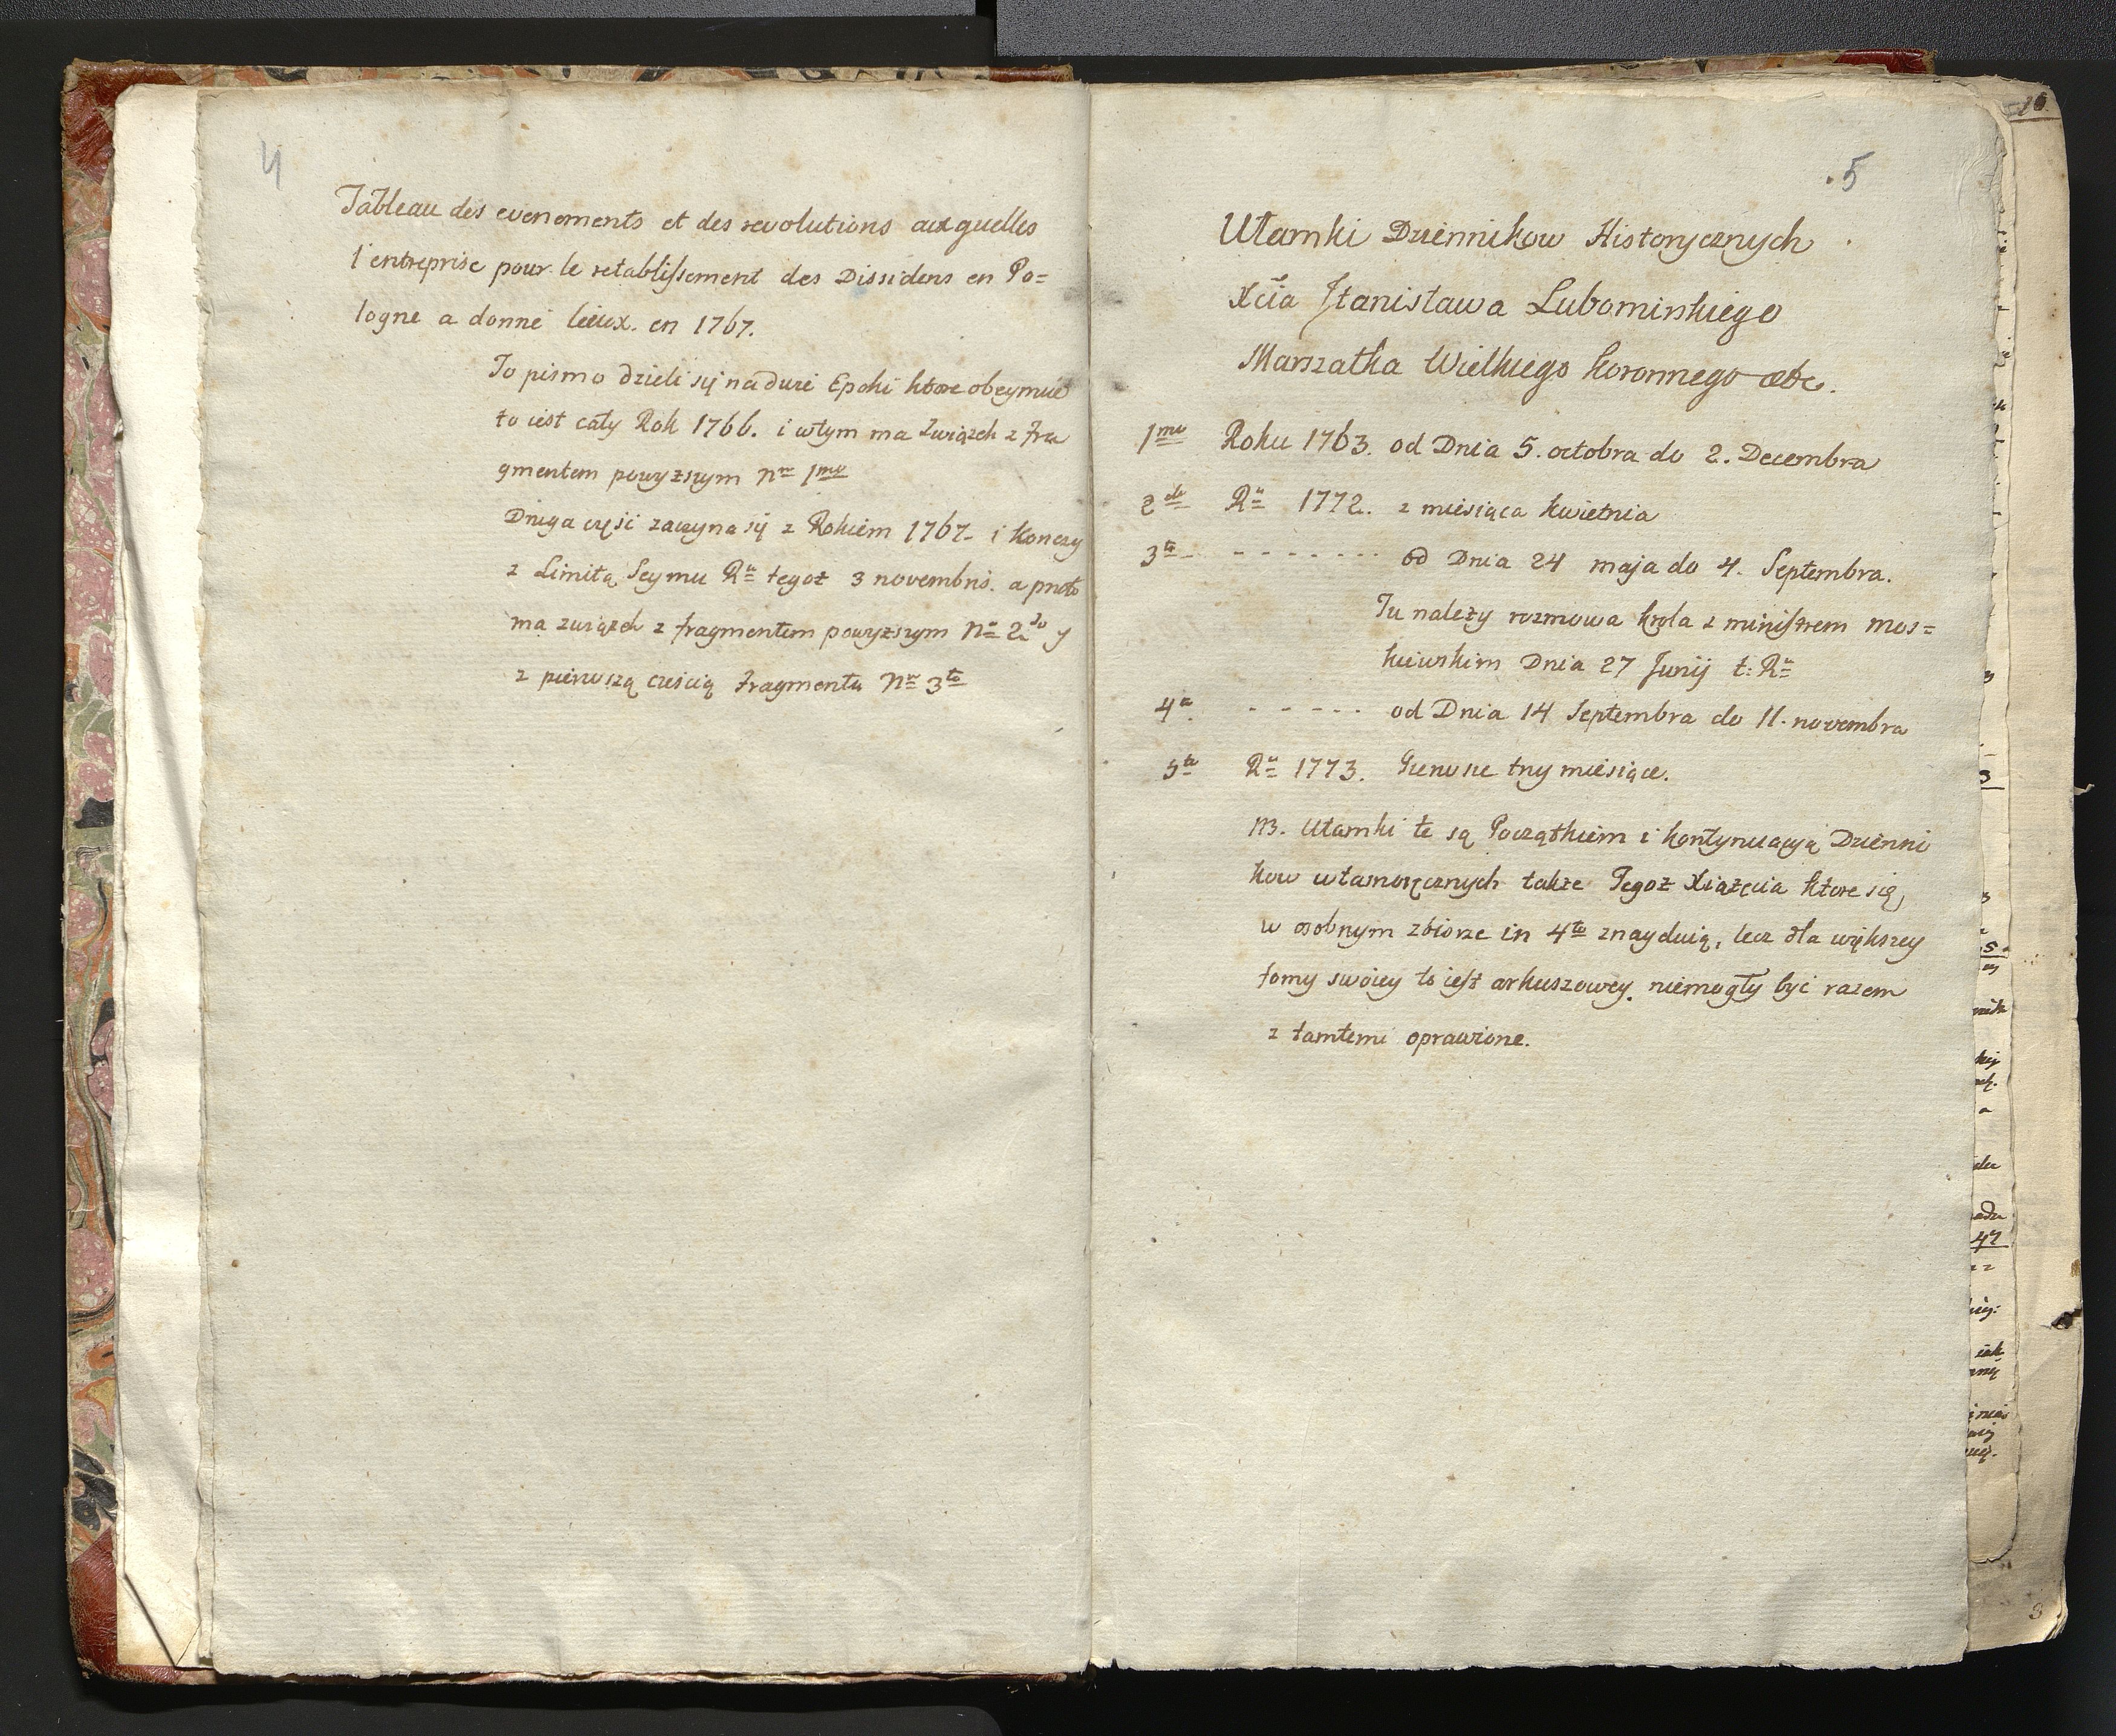 4
Tableau des evenements et des revolutions auxquelles
l'entreprise pour le retablissement des Dissidens en Po=
logne a donné lieux. en 1767.
To pismo dzieli się na dwie Epoki ktore obeymuie
to iest cały Rok 1766. i w tym ma Związek z fra
gmentem powyższym Nro 1mo
Druga częsć zaczyna się z Rokiem 1767. i konczy
z Limitą Seymu Ru tegoż 3 novembris. a przeto
ma związek z fragmentem powyższym No 2do y
z pierwszą cześcią Fragmentu Nro 3to
5
Ułamki Dziennikow Historycznych
Xcia Stanisława Lubomirskiego
Marszałka Wielkiego Koronnego etc.
1mo Roku 1763. od Dnia 5. octobra do 2. Decembra
2do Ru 1772. z miesiąca kwietnia
3to - - - - - - - - od Dnia 24 maja do 4. Septembra.
Tu należy rozmowa krola z ministrem mos=
kiewskim Dnia 27 Junij t: Ru
4to - - - - - od Dnia 14 Septembra do 11. novembra
5to Ru 1773. Pierwsze trzy miesiące.
NB. Ułamki te są Początkiem i kontynuacyą Dzienni
kow ułamorycznych także Tegoż Xiążęcia ktore się,
w osobnym zbiorze in 4to znayduią, lecz dla większey
formy swoiey to iest arkuszowey. niemogły być razem
z tamtemi oprawione.